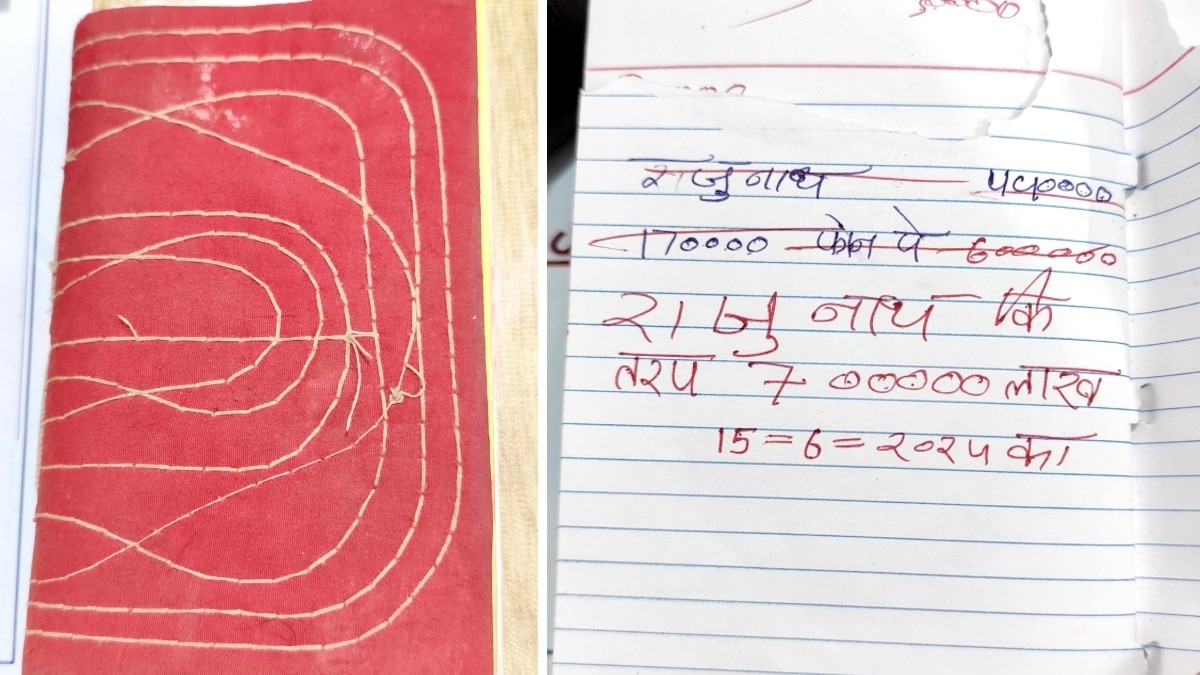 राजु नाथ ५५००००
170000 फोन पे 600000
राजु नाथ कि
तरप 7 00000 लाख
15=6=२०२५ का